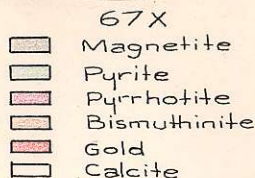 67X
Magnetite
Pyrite
Pyrrhotite
Bismuthinite
Gold
Calcite